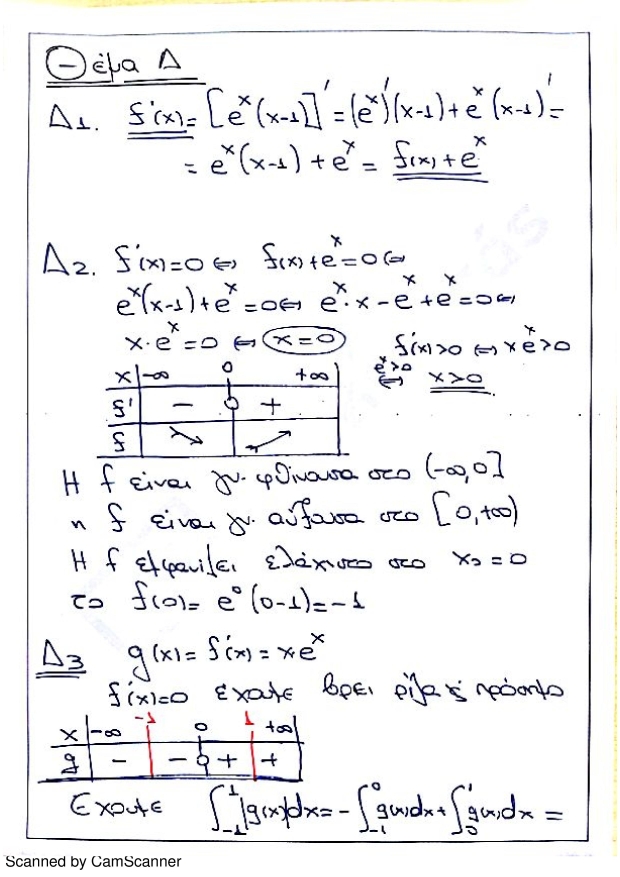 Θέμα Δ
Δ1. f'(x) = [e^x(x-1)]' = (e^x)'(x-1) + e^x(x-1)' =
= e^x(x-1) + e^x = f(x) + e^x
Δ2. f'(x)=0 ⇔ f(x)+e^x=0 ⇔
e^x(x-1)+e^x=0 ⇔ e^x·x-e^x+e^x=0 ⇔
x·e^x=0 ⇔ x=0 f'(x)>0 ⇔ xe^x>0
e^x>0 ⇔ x>0
x -∞ 0 +∞
f' - 0 +
f ↘ ↗
Η f είναι γν. φθίνουσα στο (-∞,0]
η f είναι γν. αύξουσα στο [0,+∞)
Η f εμφανίζει ελάχιστο στο x₀=0
το f(0)= e^0(0-1)=-1
Δ3 g(x)=f'(x)=xe^x
f'(x)=0 έχουμε βρει ρίζα & πρόσημο
x -∞ -1 0 1 +∞
g - - 0 + +
Έχουμε ∫_{-1}^{1}|g(x)|dx=-∫_{-1}^{0}g(x)dx+∫_{0}^{1}g(x)dx =
Scanned by CamScanner